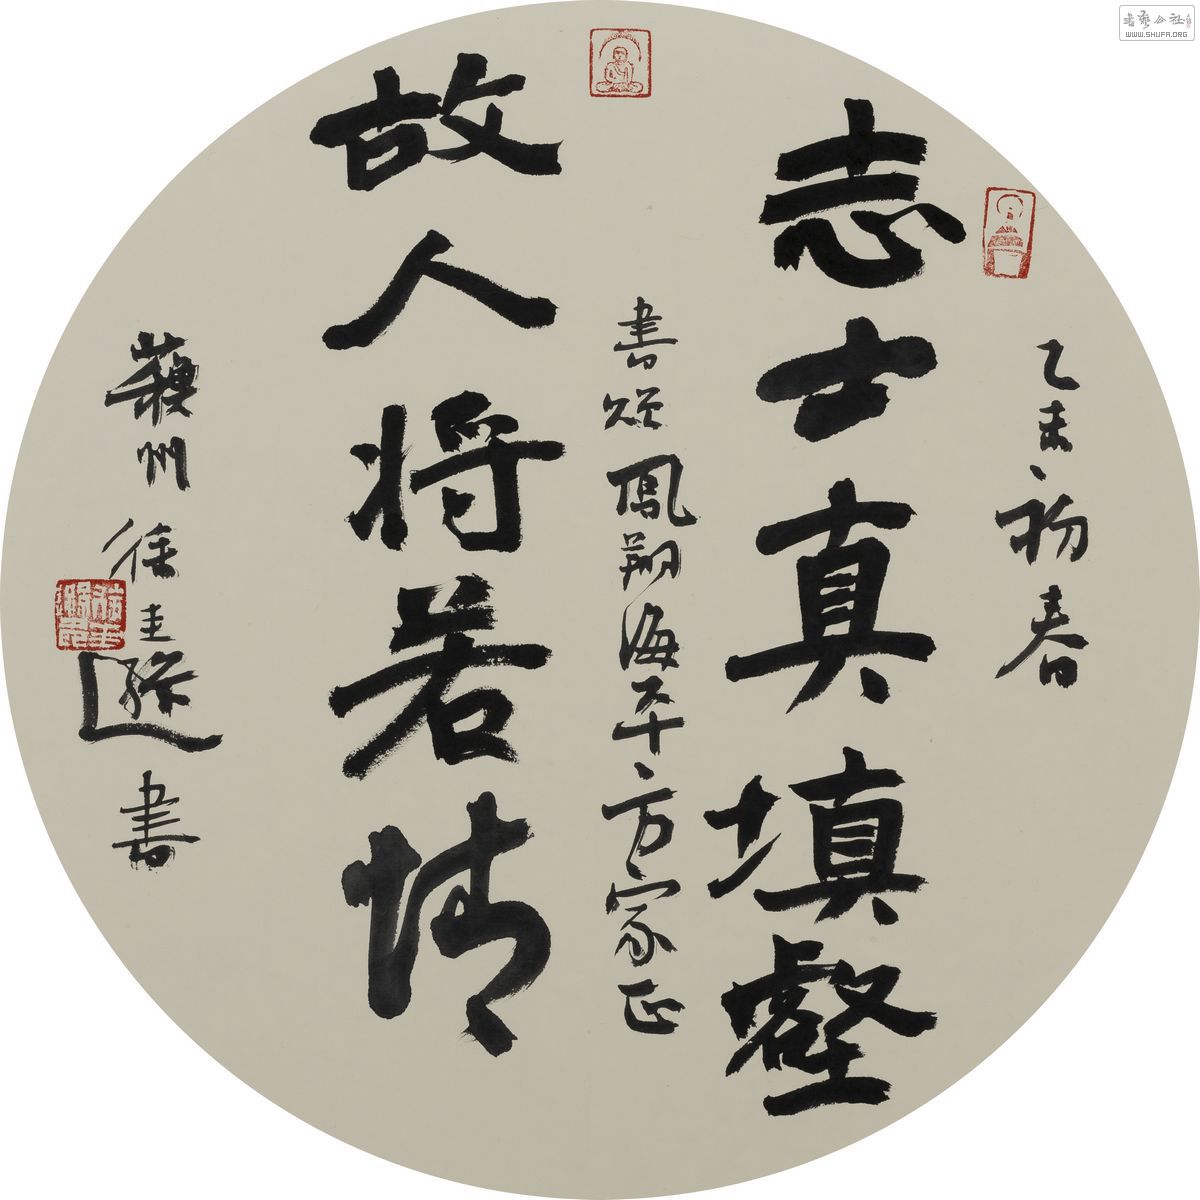 乙未初春
志士真填壑
書頌鳳翔海平方家正
故人将若情
蘇州徐圭逊書
書藝公社
WWW.SHUFA.ORG